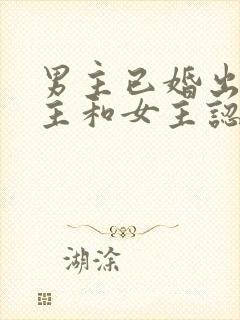 男主已婚出
主和女主認
湖涂